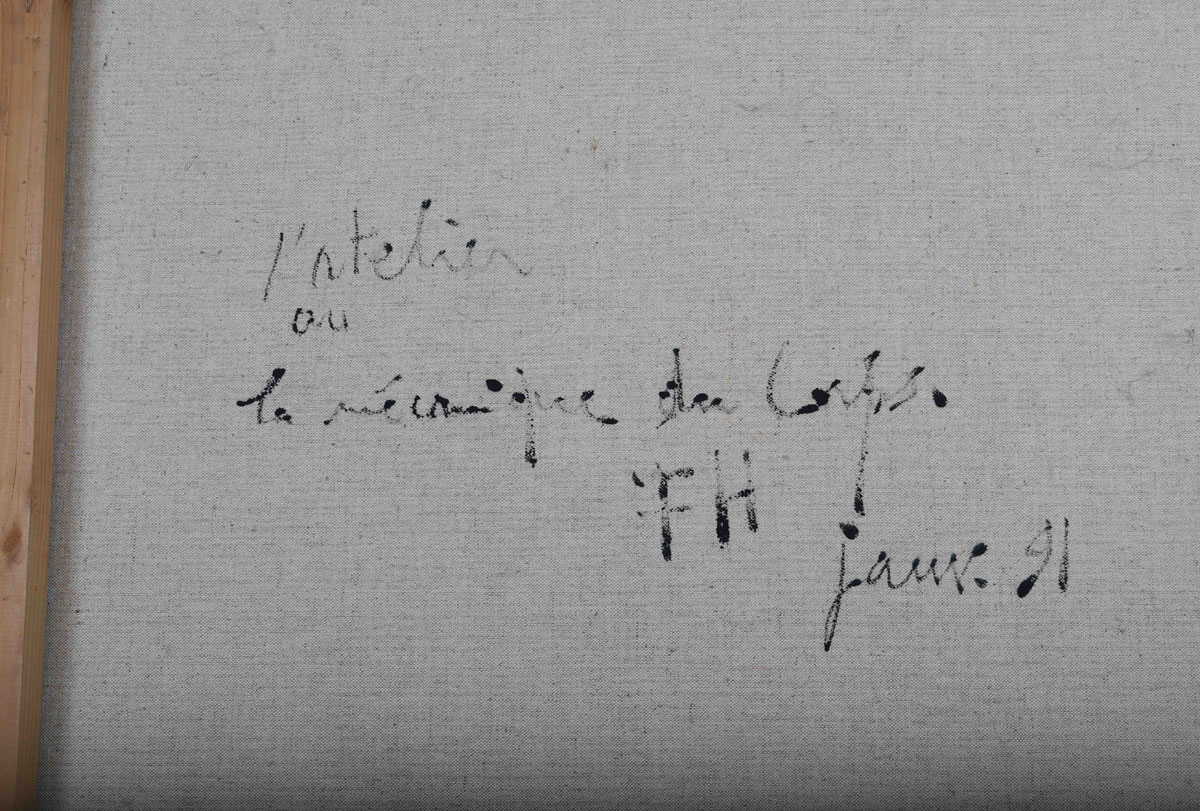 l'atelier
ou
la mécanique du Corps.
FH
janv. 91